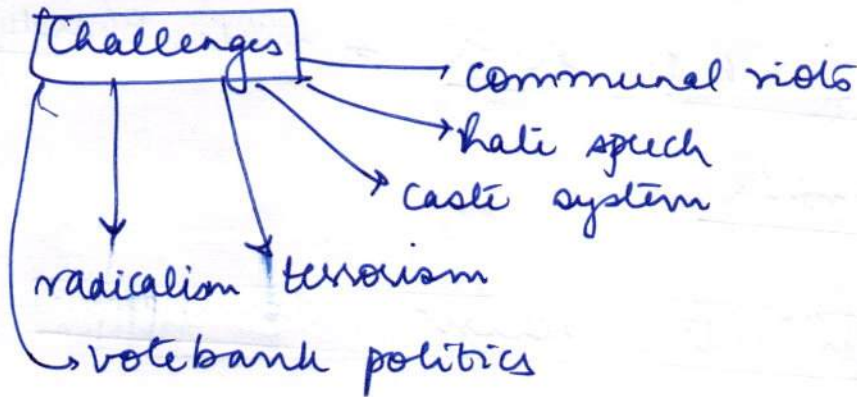 Challenges
communal riots
hate speech
caste system
radicalism terrorism
votebank politics